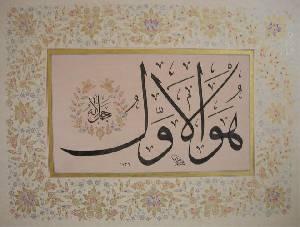 هُوَ الأَوَّلُ
جل جلاله